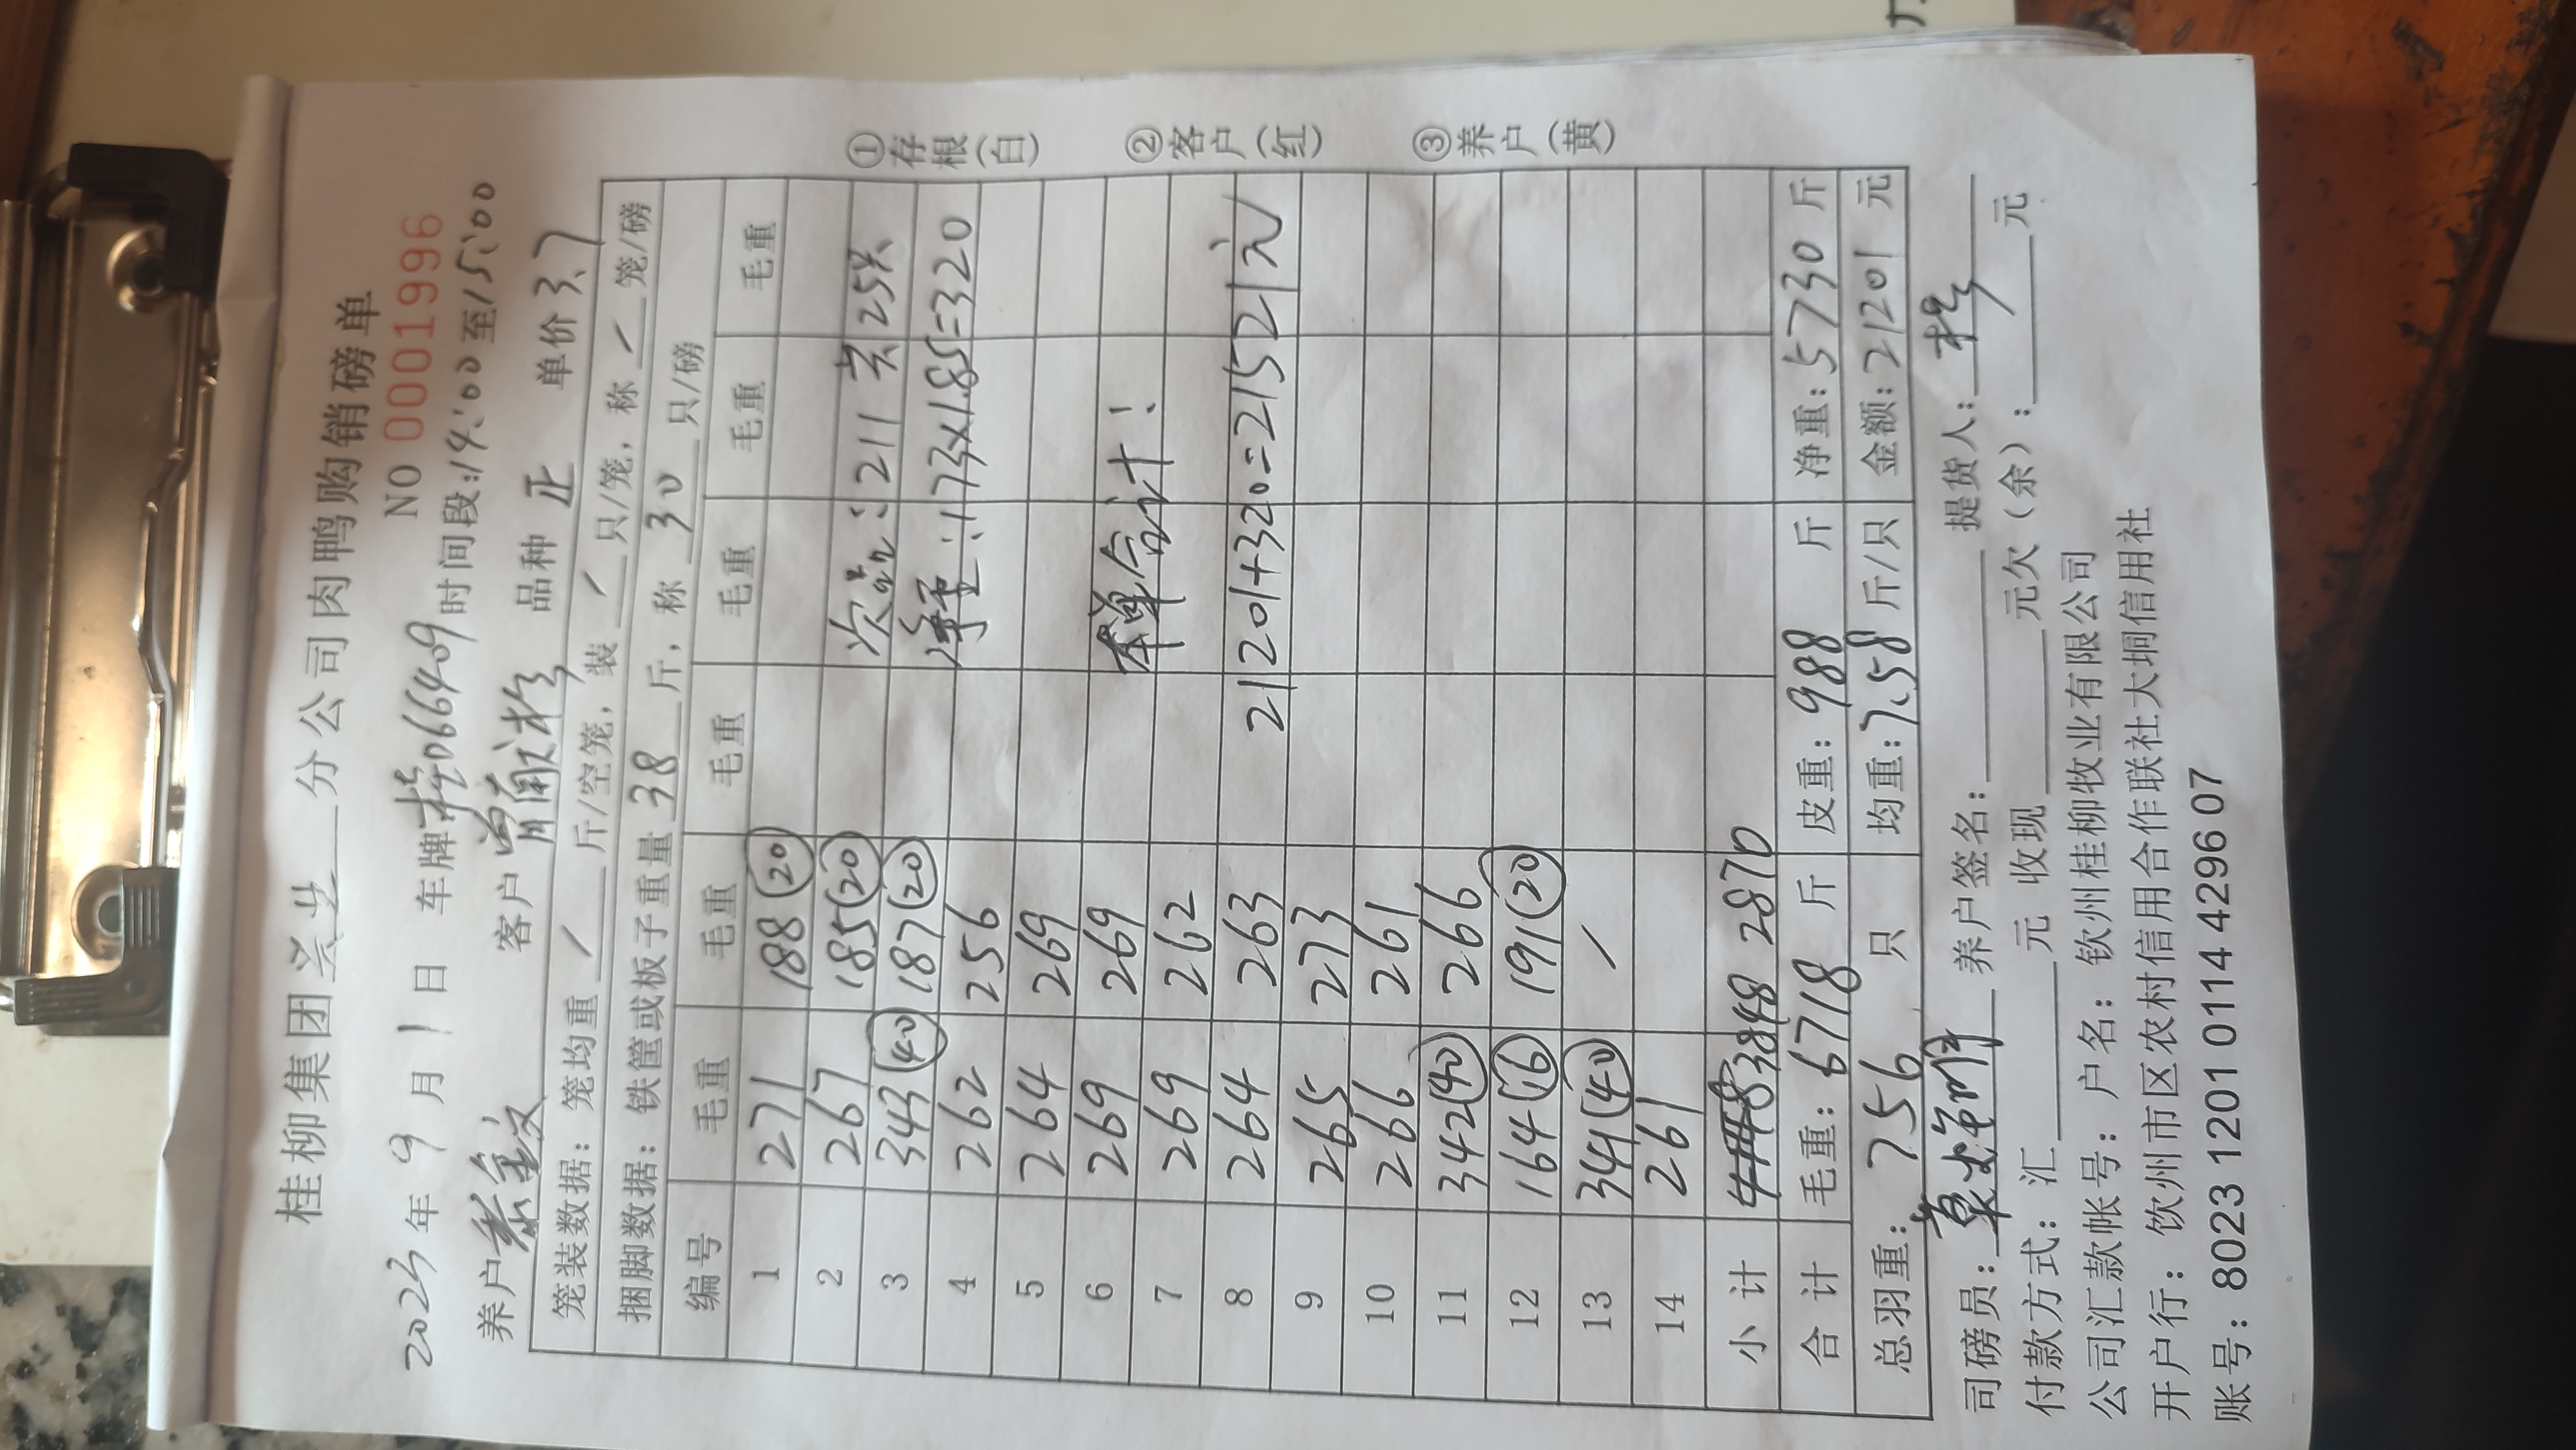 桂柳集团兴业分公司肉鸭购销磅单
NO 0001996
2023年9月1日 车牌:桂D66409 时间段:14:00至15:00
养户 客户 品种 正 单价3.7
笼装数据：笼均重 / 斤/空笼，装 / 只/笼，称 / 笼/磅
捆脚数据：铁筐或板子重量 38 斤，称 30 只/磅
编号 毛重 毛重 毛重 毛重 毛重 毛重
1 271 188 (20)
2 267 185 (20) 次品：211 共25只
3 343 (40) 187 (20) 净重：173×1.85=320
4 262 256
5 264 269
6 269 269 本单合计！
7 269 262
8 264 263 21201+320=21521元
9 265 273
10 266 261
11 342 (40) 266
12 164 (16) 191 (20)
13 341 (40) /
14 261
小计 3848 2870
合计 毛重：6718 斤 皮重：988 斤 净重：5730 斤
总羽重：756 只 均重：7.58 斤/只 金额：21201 元
司磅员： 养户签名： 提货人：
付款方式：汇 元 收现 元欠（余）： 元
公司汇款帐号：户名：钦州桂柳牧业有限公司
开户行：饮州市区农村信用合作联社大垌信用社
账号：8023 1201 0114 4296 07
①存根(白)
②客户(红)
③养户(黄)